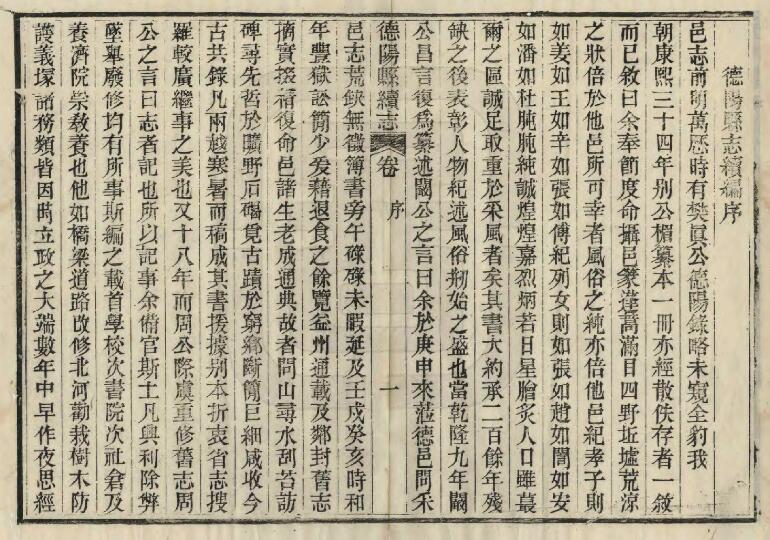 德陽縣志續編序
邑志前明萬歷時有樊眞公德陽錄略未窺全豹我
朝康熙三十四年別公楣纂本一冊亦經散佚存者一敘
而已敘曰余奉節度命攝邑篆蓬蒿滿目四野坵墟荒涼
之狀倍於他邑所可幸者風俗之純亦倍他邑紀孝子則
如姜如王如辛如張如傅紀列女則如張如趙如閻如安
如潘如杜肫肫純誠煌煌嘉烈炳若日星膾炙人口雖蕞
爾之區誠足取重於采風者矣其書大約承二百餘年殘
缺之後表彰人物紀述風俗剏始之盛也當乾隆九年闞
公昌言復爲纂述闞公之言曰余於庚申來蒞德邑問禾
德陽縣續志 卷 序 一
邑志荒缺無徵簿書旁午碌碌未暇延及壬戌癸亥時和
年豐獄訟簡少爰藉退食之餘覽益州通載及鄰封舊志
摘實掇褚復命邑諸生老成通典故者問山尋水刮苔訪
碑尋先哲於曠野石碣覓古蹟於窮鄉斷簡巨細咸收今
古共錄凡兩越寒暑而稿成其書援據別本折衷省志搜
羅較廣繼事之美也又十八年而周公際虞重修舊志周
公之言曰志者記也所以記事余備官斯土凡興利除弊
墜舉廢修均有所事斯編之載首學校次書院次社倉及
養濟院崇教養也他如橋梁道路改修北河勸栽樹木防
護義塚諸務類皆因時立政之大端數年中早作夜思經